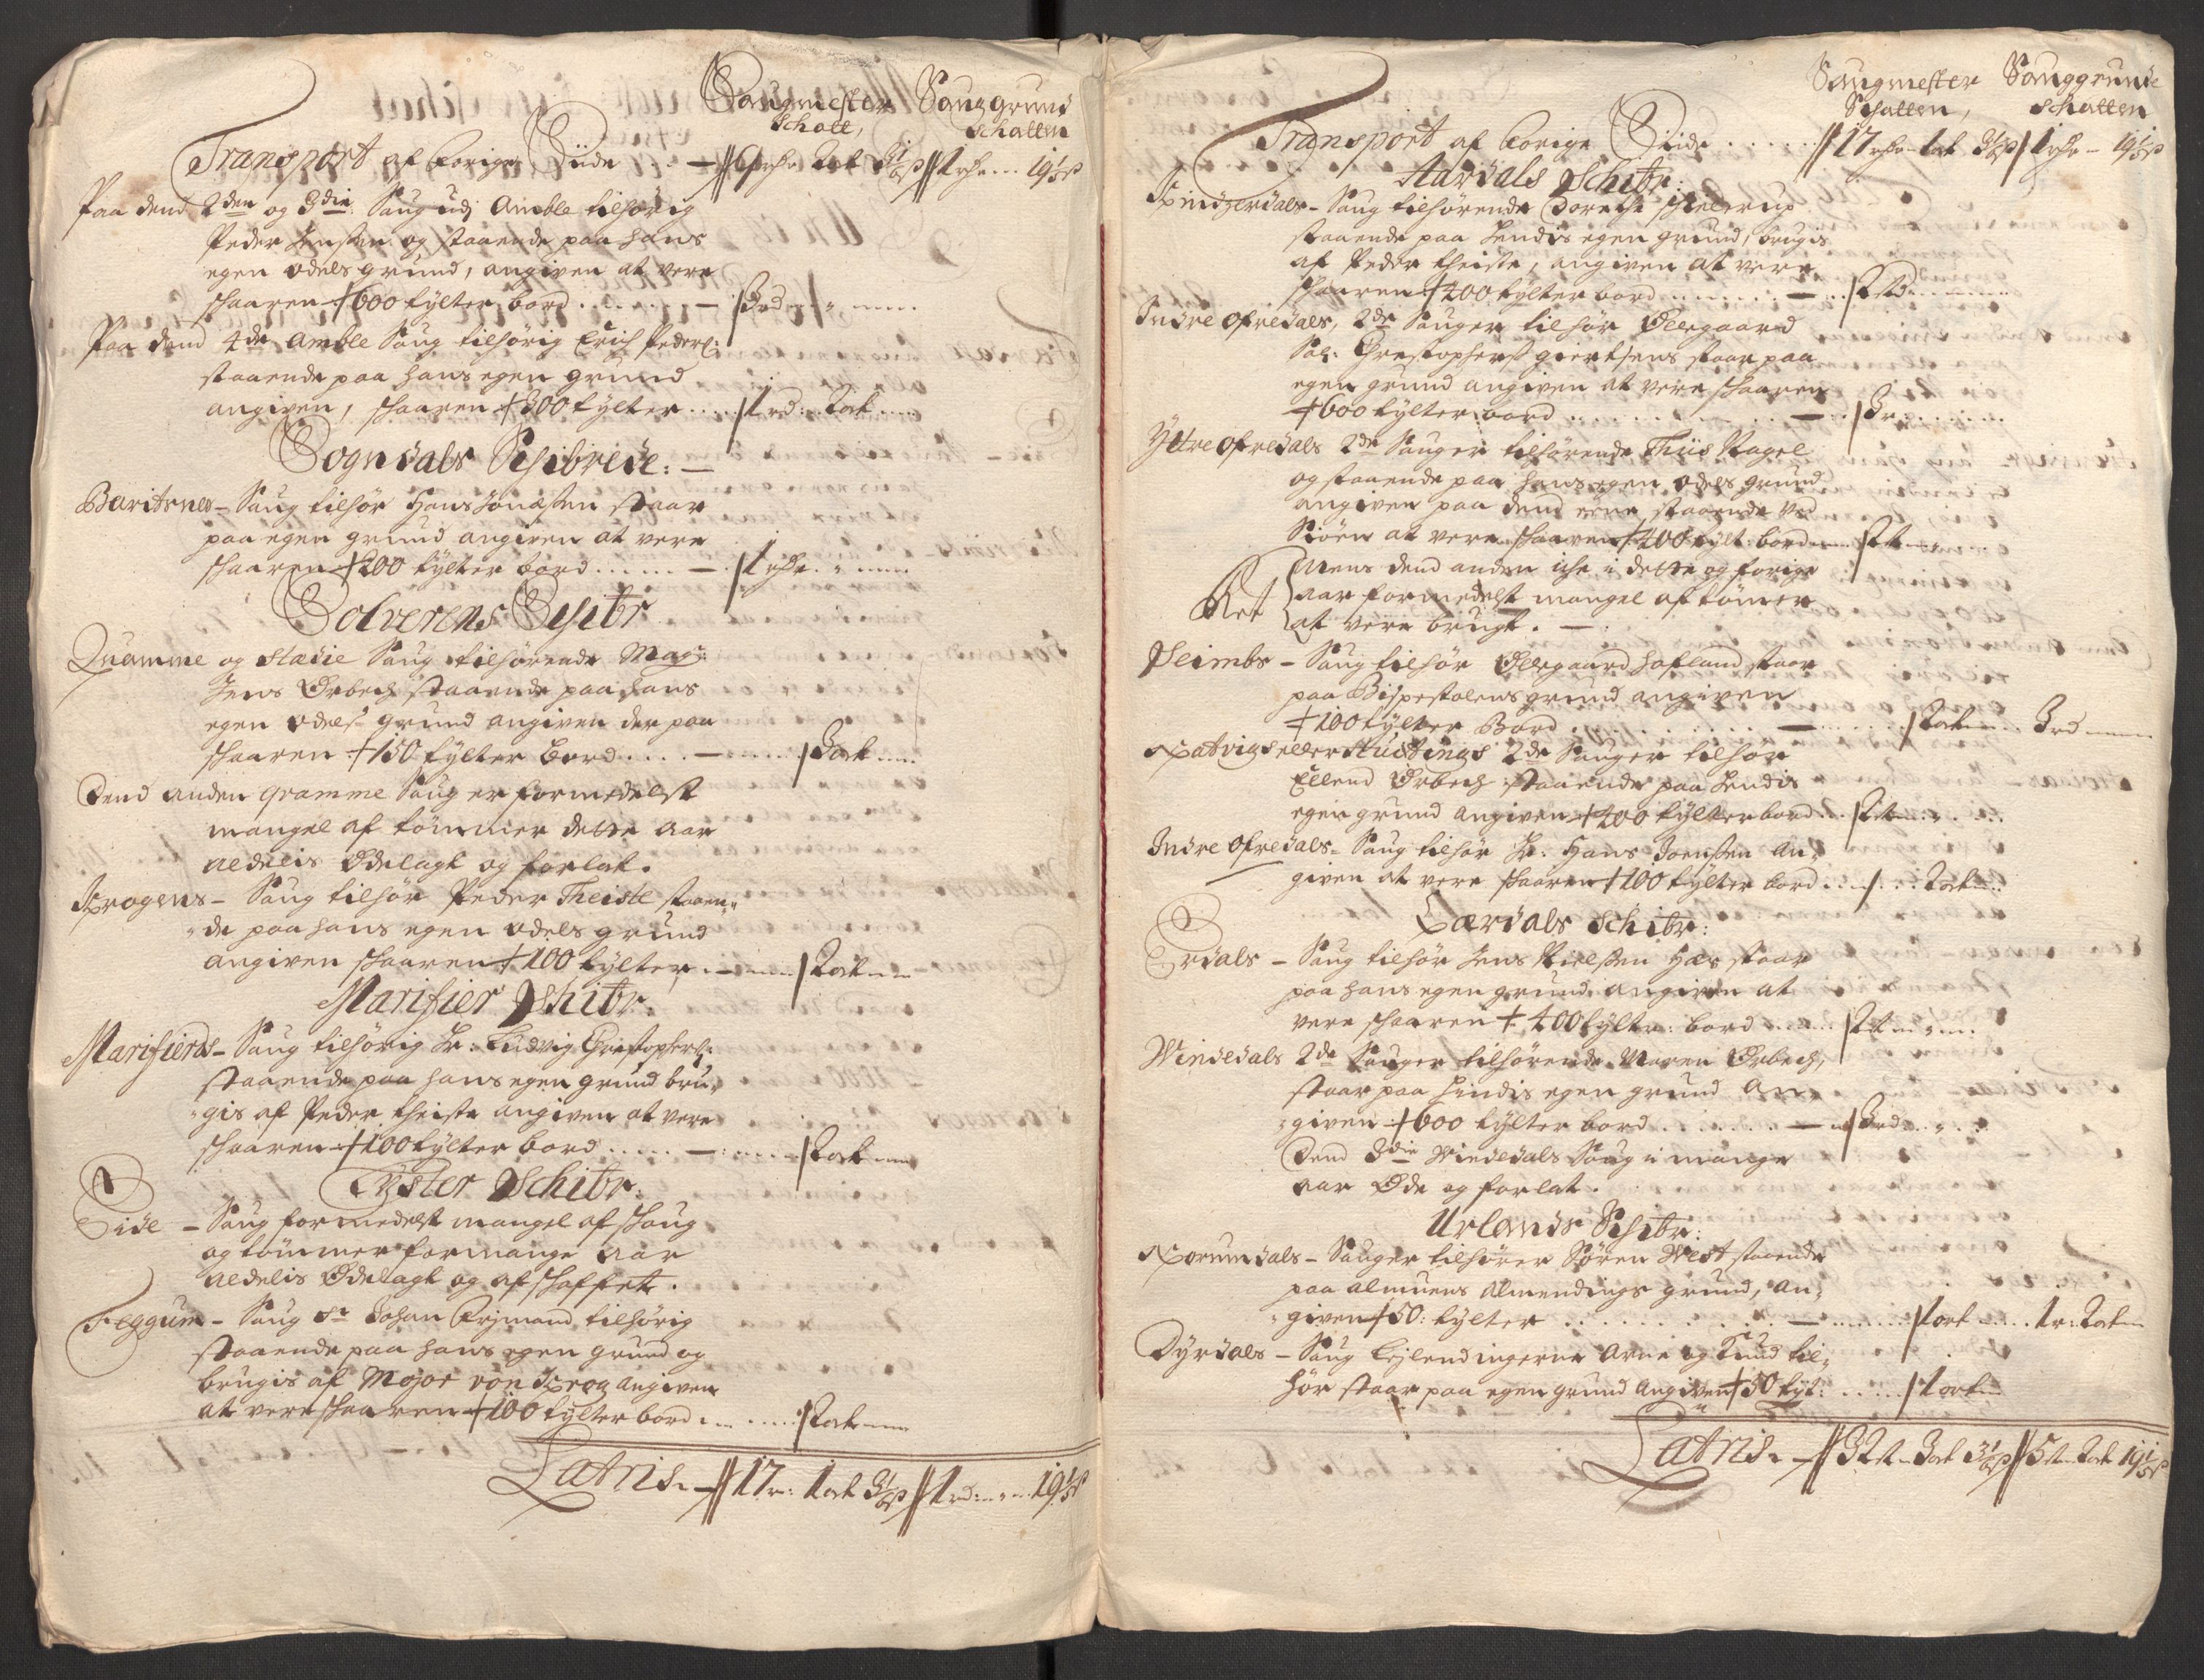 Saugmester Sauggrund
Schatt, Schatten
Transport af forige Siide 2 ort 1 19
Paa dend 2den og 3die Saug udj Amble tilhørig
Peder Jenssen og staaende paa hans
egen odels grund, angiven at vere
schaaren 600 tylter bord 3 rd
Paa dend 4de Amble Saug tilhørig Erich Peders:
staaende paa hans egen grund
angiven, schaaren 300 tylter 1 rd 2 ort
Sogndals Schibrede:
Baritsnes - Saug tilhør Hans Jonæssen staar
paa egen grund angiven at vere
schaaren 200 tylter bord 1
Solverens Schibr
Quamme og Stædie Saug tilhørende Mag:
Jens Ørbech staaende paa hans
egen odels grund angiven der paa
schaaren 150 tylter bord 3 ort
Dend anden Qvamme Saug er formedelst
mangel af tømmer dette aar
aldelis Ødelagt og forlat.
Krogens - Saug tilhør Peder Theiste staaen-
de paa hans egen odels grund
angiven schaaren 100 tylter 2 ort
Marifier Schibr:
Marifierds - Saug tilhørig Hr: Ludvig Christophers:
staaende paa hans egen grund bru-
gis af Peder theiste angiven at vere
schaaren 100 tylter bord 2 ort
Lyster Schibr:
Eide - Saug formedelst mangel af schaug
og tømmer for mange aar
aldelis Ødelagt og afschaffet.
Feggum - Saug Sr Johan Frimand tilhørig
staaende paa hans egen grund og
brugis af Major von Krog angiven
at vere schaaren 100 tylter bord 2 ort
Latris 17 r: 1 ort 3 1 rd: 19
Saugmester Sauggrunde
Schatten, schatten
Transport af forige Siide 17 1 ort 3 1 19
Aardals Schibr:
Kindzerdals - Saug tilhørende Dorethe
staaende paa hendis egen grund, brugis
af Peder theiste, angiven at vere
schaaren 400 tylter bord
Indre Ofredals, 2de Sauger tilhør Ellegaard
Sal: Christophers giertsens staar paa
egen grund angiven at vere schaaren
600 tylter bord 3 r
Yttre Ofredals 2de Sauger tilhørende Thiis Nagel
og staaende paa hans egen odels grund
angiven paa dend eene staaende ved
Siøen at vere schaaren 400 tylt bord
Mens dend anden iche i dette og forige
aar formedelst mangel af tømer
at vere brugt.
Seimbs - Saug tilhør Ellegaard hafland staar
paa Bispestolens grund angiven
100 tylter Bord 2 ort 3 rd
Natvigs eller Stuctings 2de Sauger tilhør
Ellend Ørbech staaende paa hendis
egen grund angiven 400 tylter bord
Indre Ofredals - Saug tilhør Hr: Hans Joenssen an-
given at vere schaaren 100 tylter bord 2 ort
Lærdals Schibr:
Erdals - Saug tilhør Jens Nielssen Hæs staar
paa hans egen grund angiven at
vere schaaren 400 tylter: bord
Windedals 2de Sauger tilhørende Maren Ørbech,
staar paa hindis egen grund an-
given 600 tylter bord 3 rd
Dend 3die Windedals Saug i mange
aar Øde og forlat.
Urlands Schibr:
Korundals - Sauger tilhører Søren West staaende
paa almuens almendings grund, an-
given 50: tylter 1 ort 1 r: 2 ort
Dyrdals - Saug Lejlendingerne Arne og Knud til-
hør staar paa egen grund angiven 50 tyl: 1 ort
Latris 32 3 ort 3 5 2 ort 19